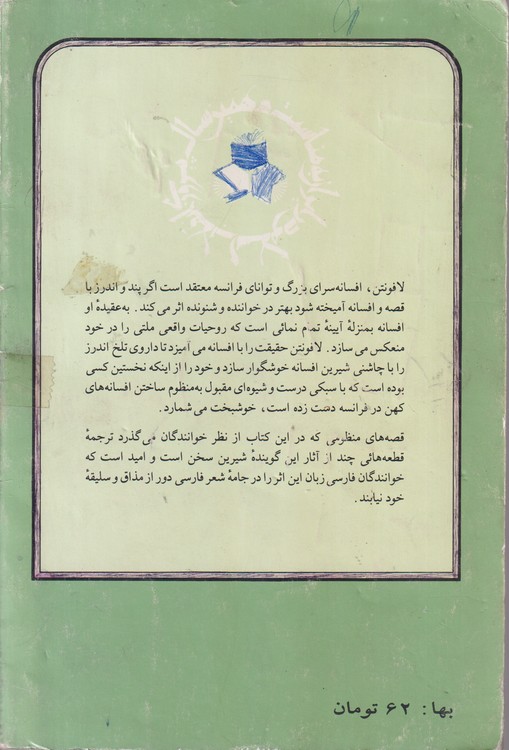 لافونتن، افسانه‌سرای بزرگ و توانای فرانسه معتقد است اگر پند و اندرز با
قصه و افسانه آمیخته شود بهتر در خواننده و شنونده اثر می‌کند. به‌عقیدهٔ او
افسانه بمنزلهٔ آیینهٔ تمام نمائی است که روحیات واقعی ملتی را در خود
منعکس می‌سازد. لافونتن حقیقت را با افسانه می‌آمیزد تا داروی تلخ اندرز
را با چاشنی شیرین افسانه خوشگوار سازد و خود را از اینکه نخستین کسی
بوده است که با سبکی درست و شیوه‌ای مقبول به‌منظوم ساختن افسانه‌های
کهن در فرانسه دست زده است، خوشبخت می‌شمارد.
قصه‌های منظومی که در این کتاب از نظر خوانندگان می‌گذرد ترجمهٔ
قطعه‌هائی چند از آثار این گویندهٔ شیرین سخن است و امید است که
خوانندگان فارسی زبان این اثر را در جامهٔ شعر فارسی دور از مذاق و سلیقهٔ
خود نیابند.
بها: ۶۲ تومان